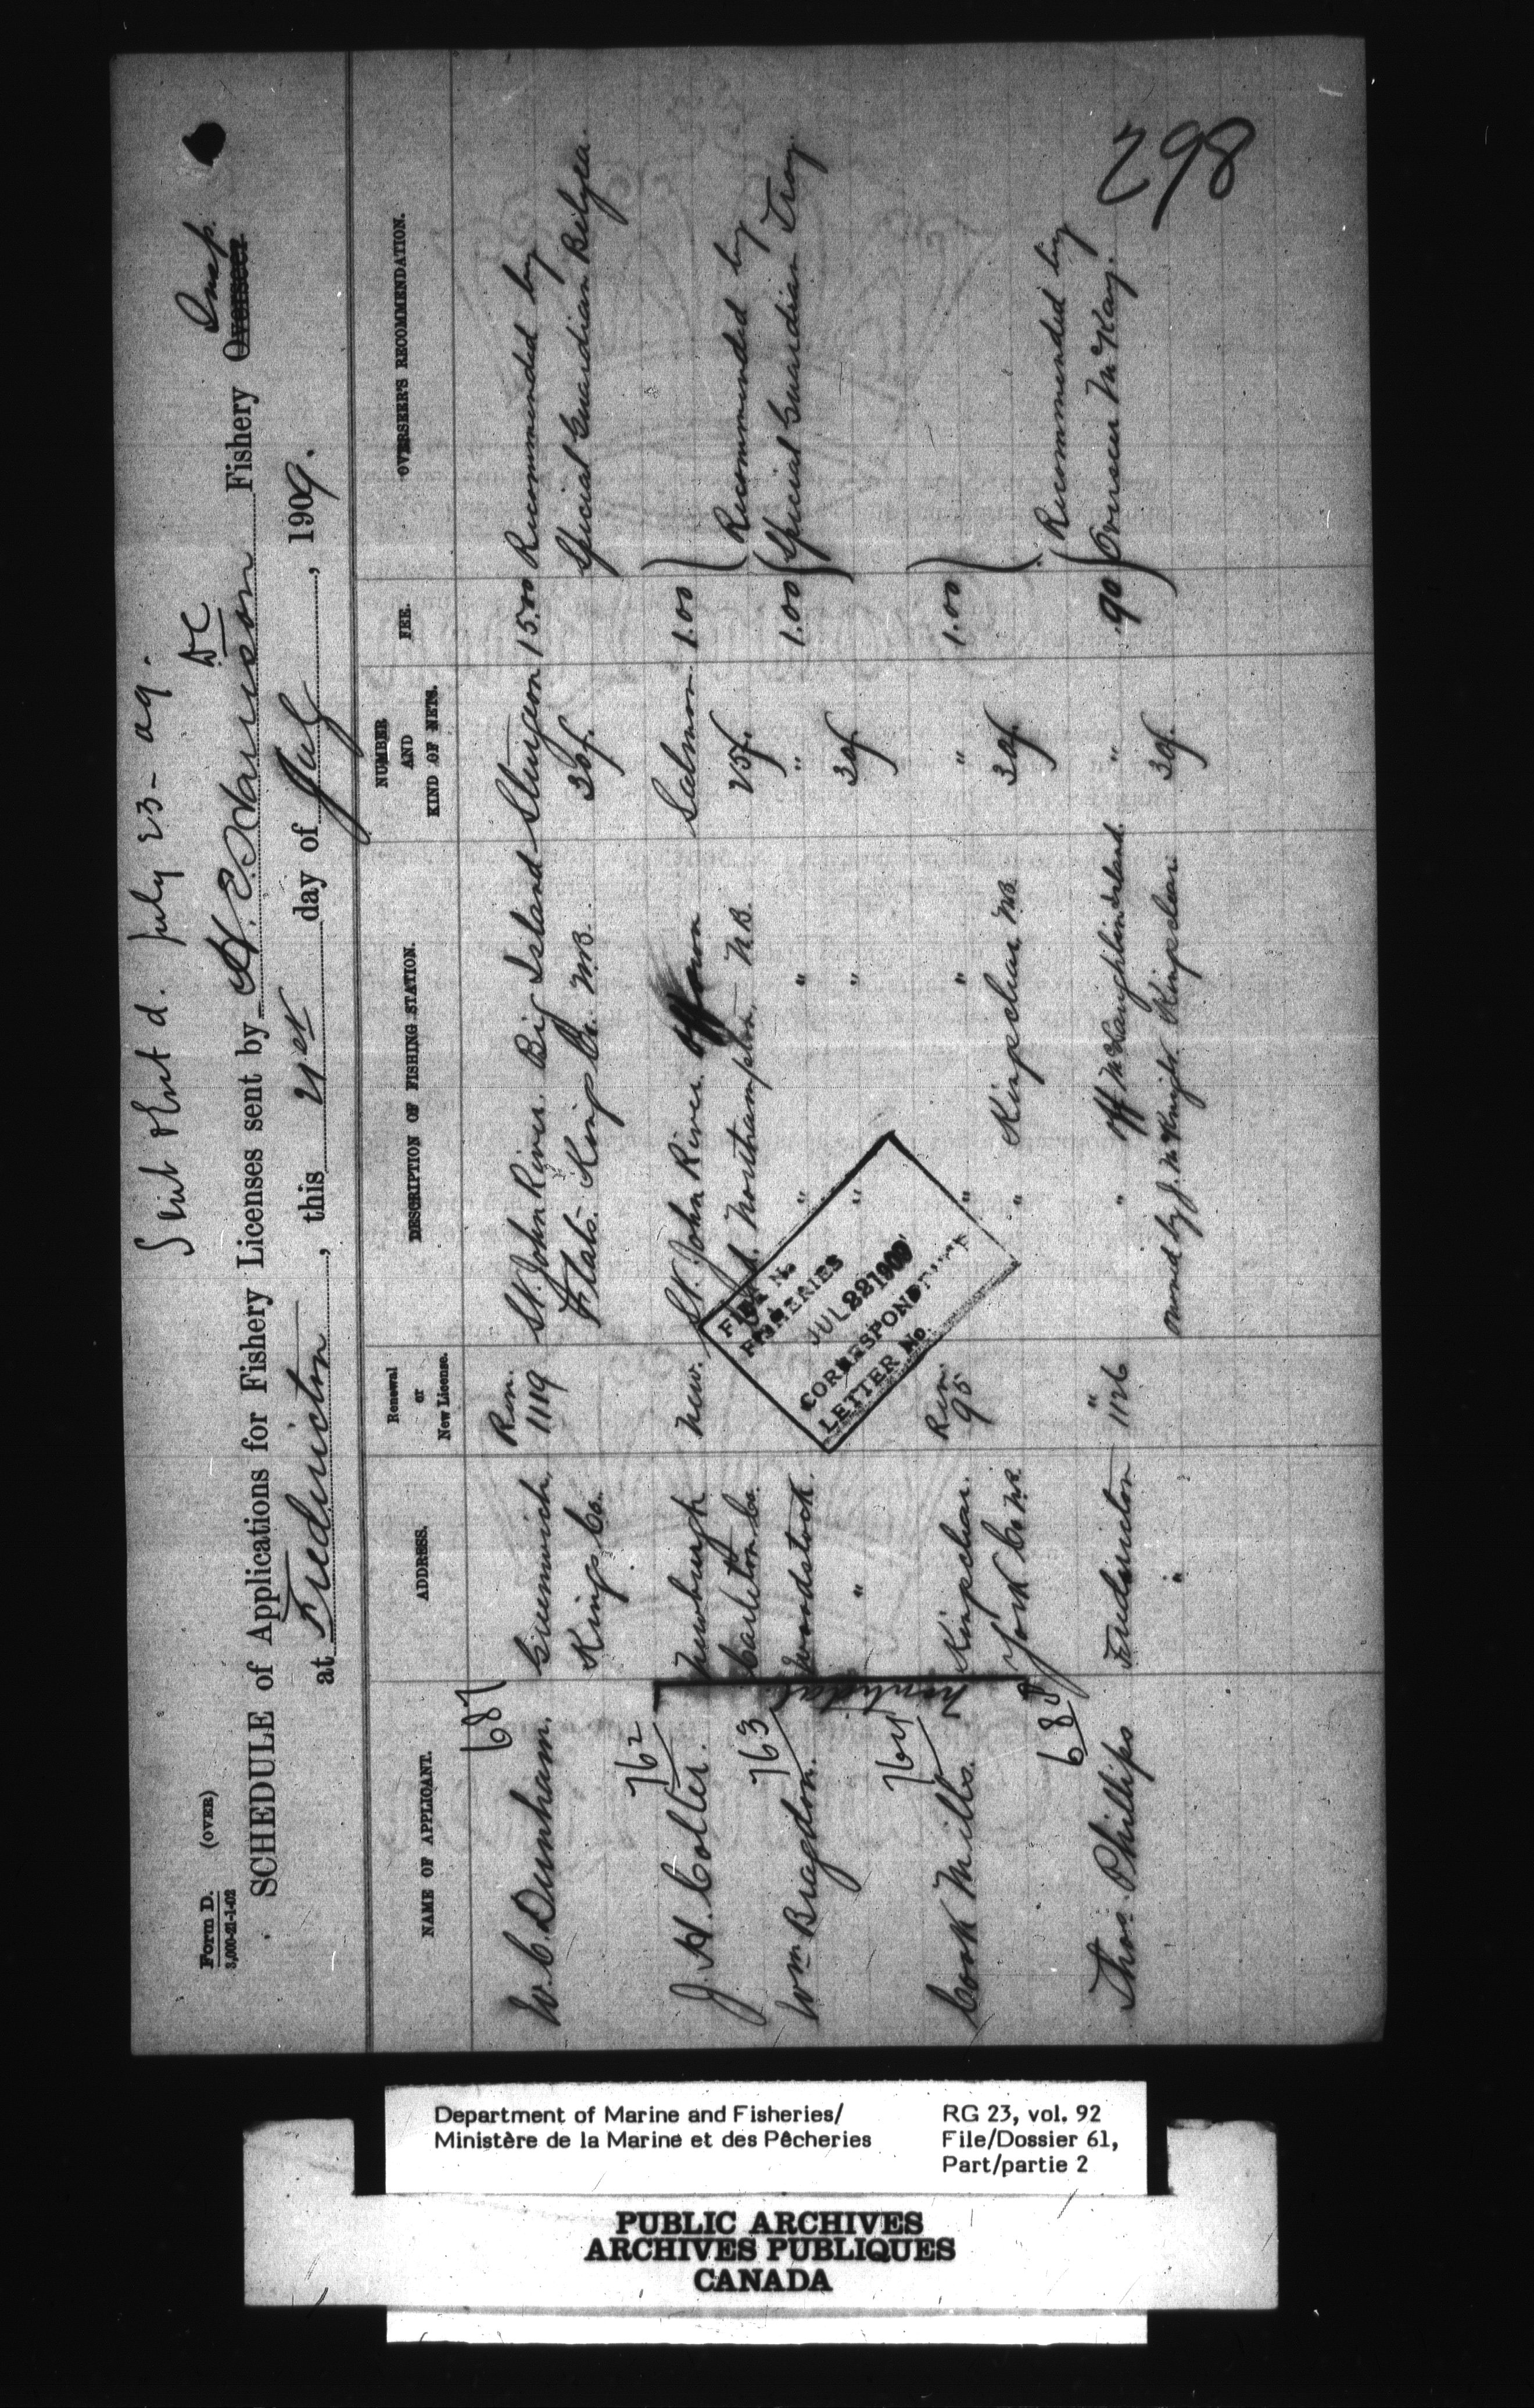 Form D. (OVER)
3,000-21-1-02
Sent July 23-09.
DC
SCHEDULE of Applications for Fishery Licenses sent by H. E. Harrison Fishery Overseer Insp.
at Fredericton, this 21st day of July, 1909.
NAME OF APPLICANT. ADDRESS. Renewal or New License. DESCRIPTION OF FISHING STATION. NUMBER AND KIND OF NETS. FEE. OVERSEER'S RECOMMENDATION.
687
W. C. Dunham. Greenwich, Ren. St. John River. Big Island Sturgeon 15.00 Recommended by
Kings Co. 1119 Flats. Kings Co. N.B. 30f. Special Guardian Belyea.
762
J. H. Colter. Newburgh New. St. John River. Off own Salmon 1.00 Recommended by
Carleton Co. Northampton, N.B. 25f. Special Guardian Tray.
763
Wm Bragdon. Woodstock. " " " 1.00
" " " 30f.
764
Cook Mills. Kingsclear. Ren. " " " 1.00
York Co. N.B. 95 " Kingsclear, N.B. 30f.
688
Thos. Phillips Fredericton " 1126 " Off McLaughlin Island. " .90 Recommended by
" owned by J. McKnight. Kingsclear. 30f. Overseer McKay.
298
FILE No.
FISHERIES
JUL 22 1909
CORRESPONDENCE
LETTER No.
Department of Marine and Fisheries/
Ministère de la Marine et des Pêcheries
RG 23, vol. 92
File/Dossier 61,
Part/partie 2
PUBLIC ARCHIVES
ARCHIVES PUBLIQUES
CANADA